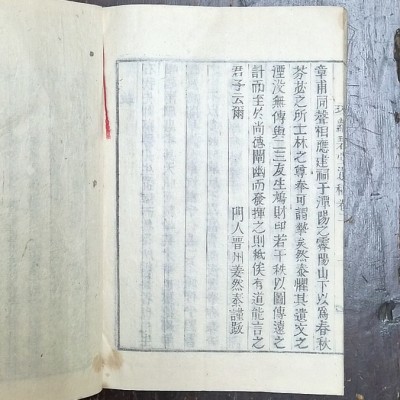 章甫同聲相應建祠于潭陽之雲陽山下以爲春秋
芬苾之所士林之尊奉可謂摯矣然泰懼其遺文之
湮没無傳與二三友生鳩財印若干秩以圖傳遠之
計而至於尚德闡幽而發揮之則秪俟有道能言之
君子云爾
門人晋州姜然泰謹跋